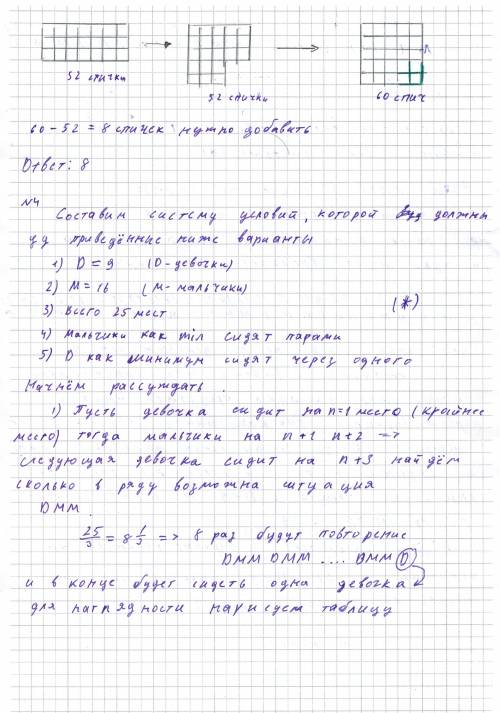 52 спички
52 спички
60 спич
60 - 52 = 8 спичек нужно добавить
Ответ: 8
№4
Составим систему условий, которой должны
уд приведённые ниже варианты
1) D = 9 (D - девочки)
2) M = 16 (M - мальчики)
3) Всего 25 мест
(*)
4) Мальчики как min сидят парами
5) D как минимум сидят через одного
Начнём рассуждать.
1) Пусть девочка сидит на n=1 место (крайнее
место) тогда мальчики на n+1 n+2 =>
следующая девочка сидит на n+3 найдём
сколько в ряду возможна ситуация
DMM.
25/3 = 8 1/3 => 8 раз будут повторение
DMM DMM .... DMM D
и в конце будет сидеть одна девочка
для наглядности нарисуем таблицу